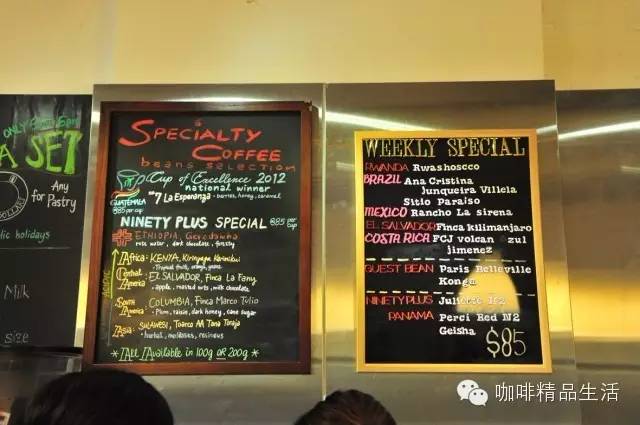 A SET
Any
for Pastry
lic holidays
Milk
Size
SPECIALTY
COFFEE
beans selection
Cup of Excellence 2012
national winner
GUATEMALA
#7 La Esperanza
$85 per cup
NINETY PLUS SPECIAL $85 per cup
ETHIOPIA,
rose water, dark chocolate,
Africa: KENYA, Kirinyaga
Tropical fruit, orange,
Central America: EL SALVADOR, Finca La Fany
apple, roasted nuts, milk chocolate
South America: COLUMBIA, Finca Marco Tulio
Plum, raisin, dark honey, cane sugar
Asia: SULAWESI, Toarco AA Tana Toraja
herbal, molasses, resinous
*ALL Available in 100g OR 200g*
WEEKLY SPECIAL
RWANDA Rwashoscco
BRAZIL Ana Cristina
Junqueira Villela
Sitio Paraiso
MEXICO Rancho La sirena
EL SALVADOR Finca kilimanjaro
COSTA RICA FCJ volcan zul
jimenez
GUEST BEAN Paris Belleville
Konga
NINETY PLUS Juliette N2
PANAMA Perci Red N2
Geisha
$85
咖啡精品生活